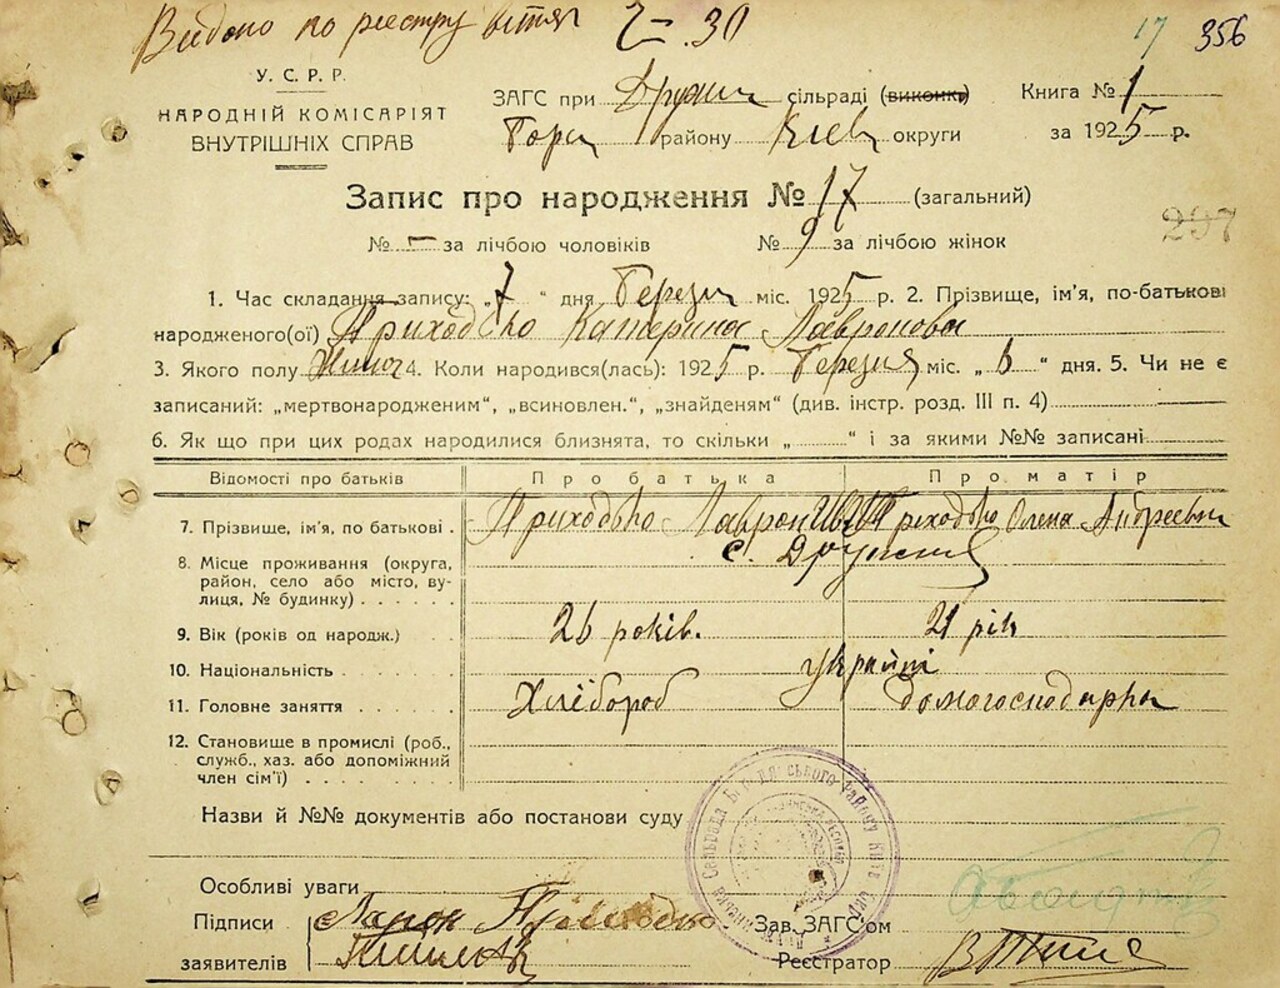 Видано по реєстру
17 356
У. С. Р. Р.
НАРОДНІЙ КОМІСАРІЯТ
ВНУТРІШНІХ СПРАВ
ЗАГС при сільраді (виконк)
району Київ округи
Книга № 1
за 1925 р.
Запис про народження № 17 (загальний)
№ – за лічбою чоловіків № 9 за лічбою жінок
297
1. Час складання запису: „7“ дня Березня міс. 1925 р. 2. Прізвище, ім'я, по-батькові
народженого(ої) Приходько Катерина Лавронова
3. Якого полу Жіноч 4. Коли народився(лась): 1925 р. Березня міс. „6“ дня. 5. Чи не є
записаний: „мертвонародженим“, „всиновлен.“, „знайденям“ (див. інстр. розд. III п. 4)
6. Як що при цих родах народилися близнята, то скільки „ “ і за якими №№ записані
Відомості про батьків Про батька Про матір
7. Прізвище, ім'я, по батькові . Приходько Лаврон Приходько Олена Андреевна
8. Місце проживання (округа,
район, село або місто, ву-
лиця, № будинку) . . . . . .
с.
9. Вік (років од народж.) . . 26 років. 21 рік
10. Національність . . . . . . україні
11. Головне заняття . . . . . Хлібороб домогосподарка
12. Становище в промислі (роб.,
служб., хаз. або допоміжний
член сім'ї) . . . . . . . .
Назви й №№ документів або постанови суду
Особливі уваги
Підписи
заявителів
Зав. ЗАГС'ом
Реєстратор